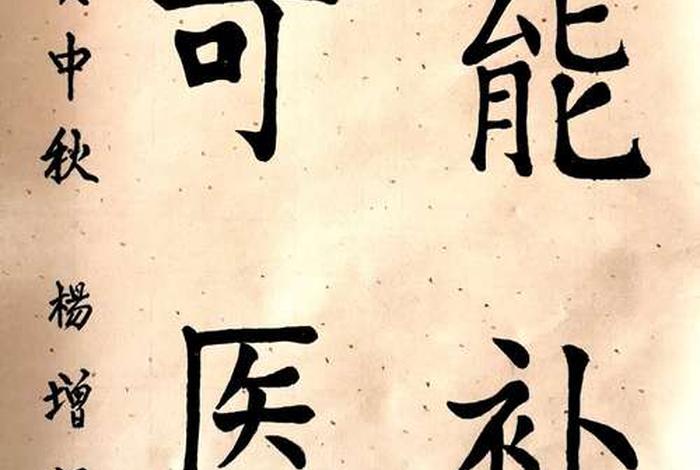 能补
可医
中秋 楊增